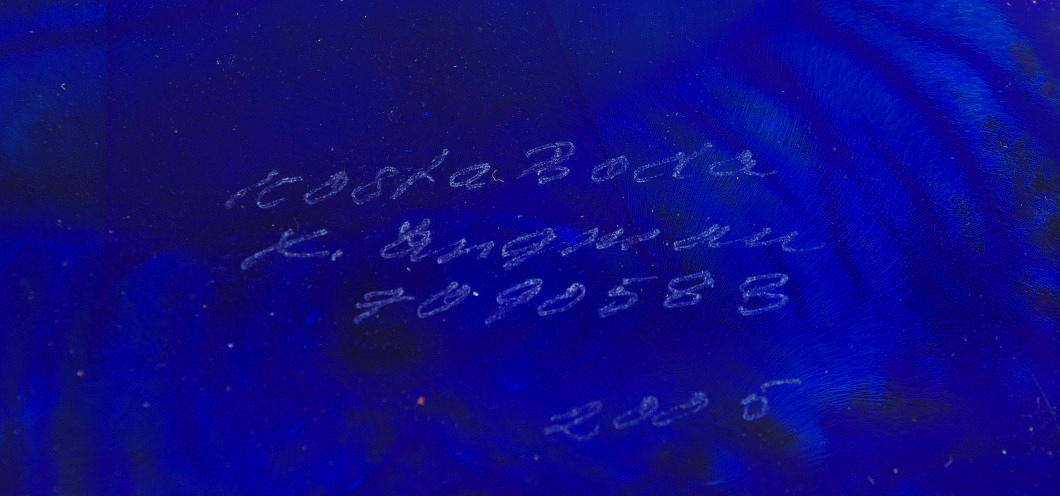 Kosta Boda
K. Engman
7090583
2005